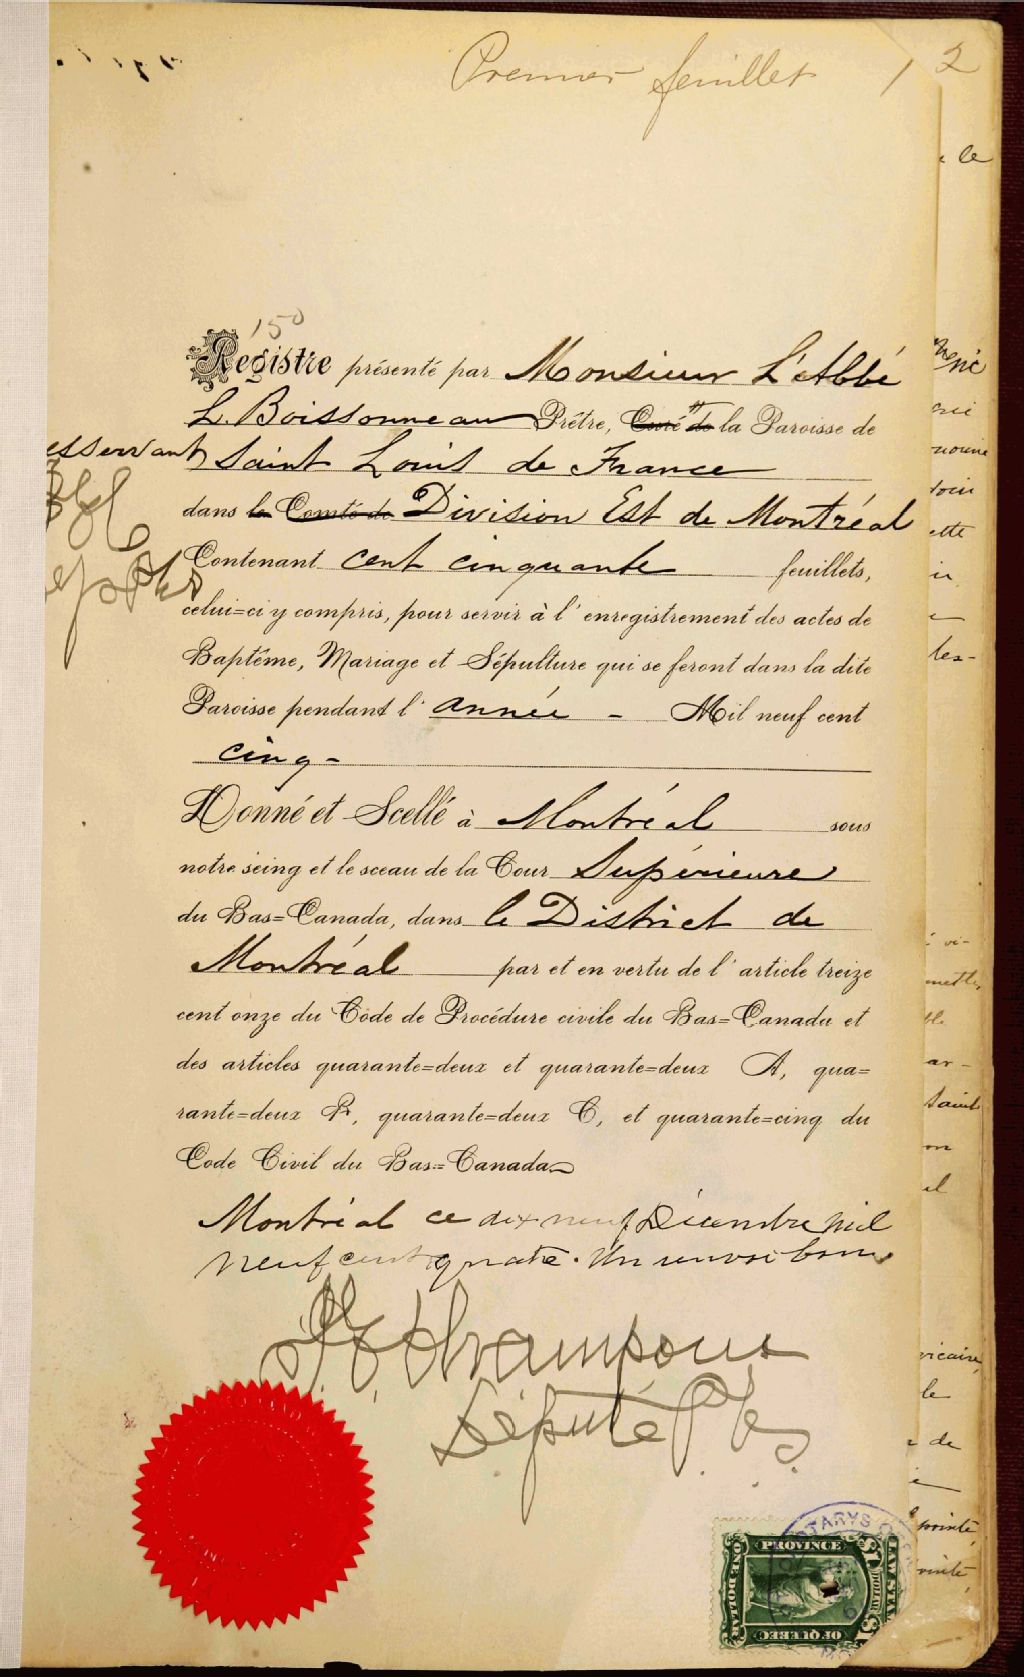 Premier feuillet 1
2
150
Registre présenté par Monsieur L'Abbé
L. Boissonneau Prêtre, Curé de la Paroisse de
esservant Saint Louis de France
dans le Comté de Division Est de Montréal
Contenant cent cinquante feuillets,
celui=ci y compris, pour servir à l'enregistrement des actes de
Baptême, Mariage et Sépulture qui se feront dans la dite
Paroisse pendant l'année - Mil neuf cent
cinq -
Donné et Scellé à Montréal sous
notre seing et le sceau de la Cour Supérieure
du Bas=Canada, dans le District de
Montréal par et en vertu de l'article treize
cent onze du Code de Procédure civile du Bas=Canada et
des articles quarante=deux et quarante=deux A, qua=
rante=deux B, quarante=deux C, et quarante=cinq du
Code Civil du Bas=Canada
Montréal ce dix neuf Décembre Mil
neuf cent quatre. Un renvoi bon
Député P C S
PROVINCE
OF QUEBEC
LAW STAMP
ONE DOLLAR
$1 DOLLAR $1